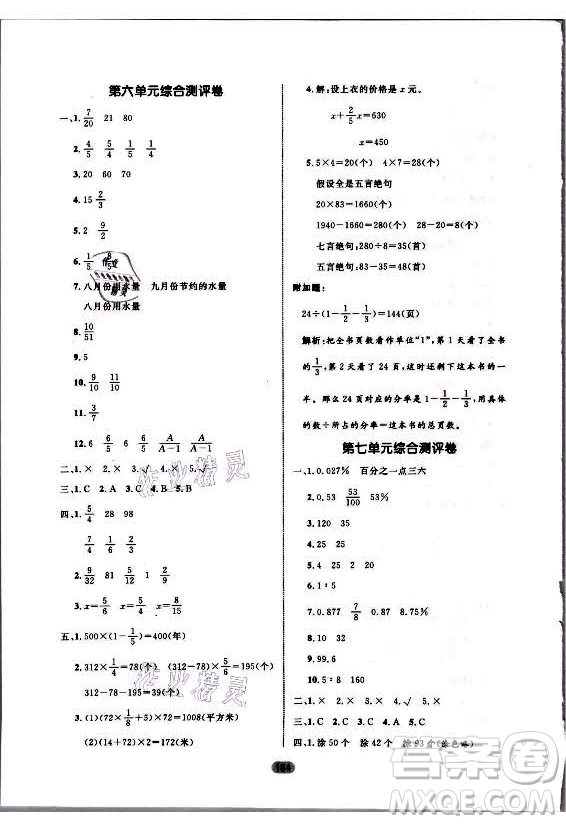 第六单元综合测评卷
一、1. 7/20 21 80
2. 4/5 1/5 1/2 1/4
3. 15 2/3
4. 15
5. 2 9/2
6. 1/5 8/5
7. 八月份用水量 九月份节约的水量
八月份用水量
8. 10/51
9. 5
10. 9/10 11/10
11. 3/7
12. 6 6/5 6/5 A/A-1 A/A-1
二、1. × 2. × 3. √ 4. × 5. ×
三、1. C 2. A 3. C 4. A 5. B
四、1. 5/4 28 98
7/4 1/4 4/9
2. 9/32 81 12/5 1 2/9
3. x=5/6 x=4/5 x=8/15
五、1. 500×(1-1/5)=400(年)
2. 312×1/4=78(个) (312-78)×5/6=195(个)
312-78-195=39(个)
3. (1)(72×1/8+5)×72=1008(平方米)
(2)(14+72)×2=172(米)
4. 解：设上衣的价格是 x 元。
x+2/5x=630
x=450
5. 5×4=20(个) 4×7=28(个)
假设全是五言绝句
20×83=1660(个)
1940-1660=280(个) 28-20=8(个)
七言绝句：280÷8=35(首)
五言绝句：83-35=48(首)
附加题：
24÷(1-1/2-1/3)=144(页)
解析：把全书页数看作单位“1”，第 1 天看了全书
的1/3，第 2 天看了 24 页，这时还剩下这本书的一
半。那么 24 页对应的分率是 1-1/2-1/3，用具体
的数÷所占的分率=这本书的总页数。
第七单元综合测评卷
一、1. 0.027% 百分之一点三六
2. 0.53 53/100 53%
3. 120 35
4. 25 25
5. 4 25 20 20
6. 1∶5
7. 0.877 7/8 0.87 87%
8. 1.2
9. 99.6
10. 5∶8 160
二、1. × 2. × 3. √ 4. × 5. ×
三、1. C 2. A 3. C 4. C 5. C
四、1. 涂 50 个 涂 42 个 涂 93 个(涂色略)
184
作业精灵
作业精灵
答案圈
MXQE.COM